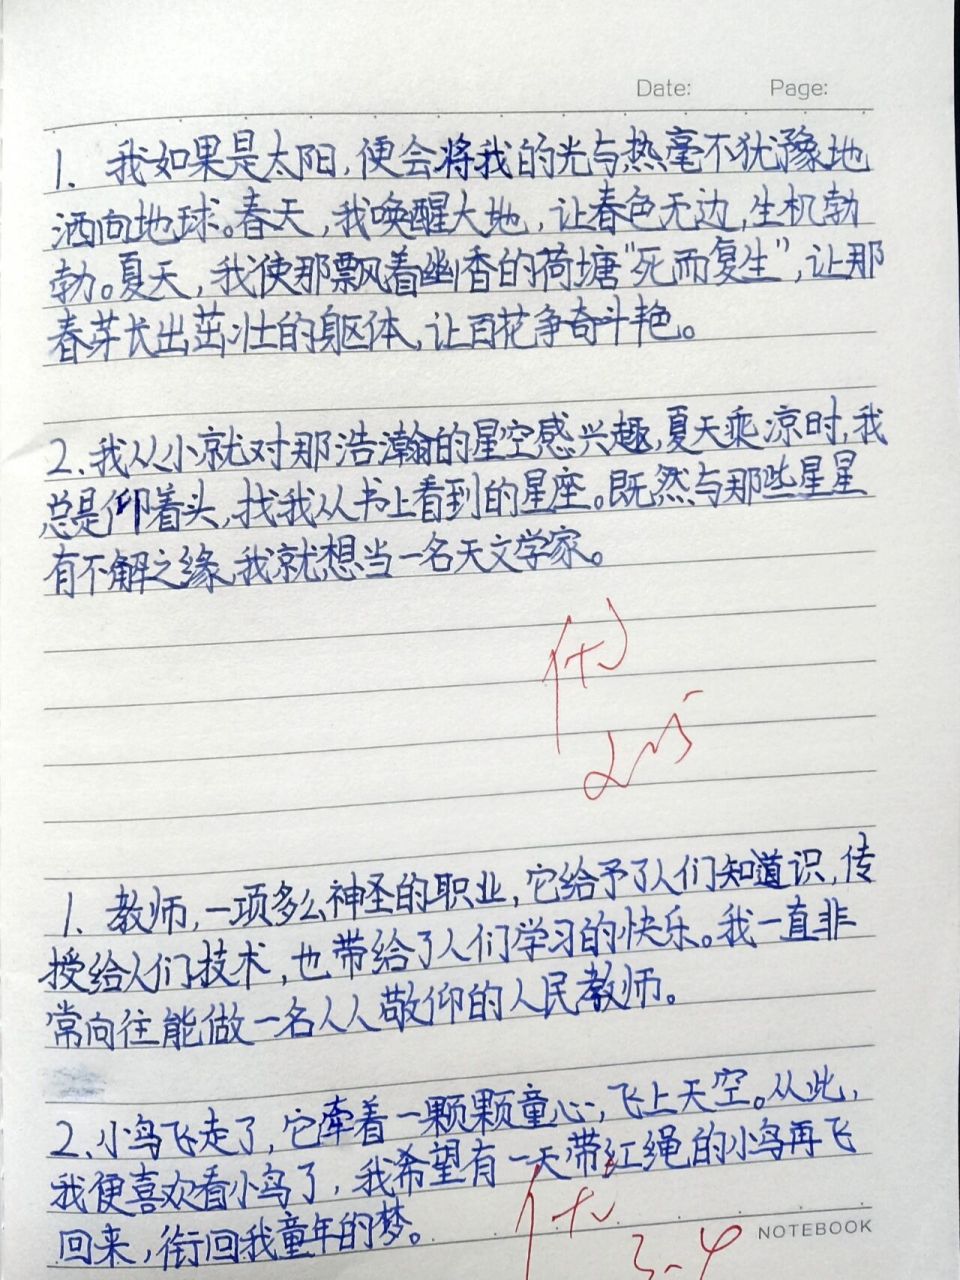 Date: Page:
1. 我如果是太阳,便会将我的光与热毫不犹豫地
洒向地球。春天,我唤醒大地,让春色无边,生机勃
勃。夏天,我使那飘着幽香的荷塘“死而复生”,让那
春芽长出茁壮的身躯体,让百花争奇斗艳。
2、我从小就对那浩瀚的星空感兴趣,夏天乘凉时,我
总是仰着头,找我从书上看到的星座。既然与那些星星
有不解之缘,我就想当一名天文学家。
1. 教师,一项多么神圣的职业,它给予了人们知道识,传
授给人们技术,也带给了人们学习的快乐。我一直非
常向往能做一名人人敬仰的人民教师。
2、小鸟飞走了,它牵着一颗颗童心,飞上天空。从此,
我便喜欢看小鸟了,我希望有一天带红绳的小鸟再飞
回来,衔回我童年的梦。
3-4
NOTEBOOK